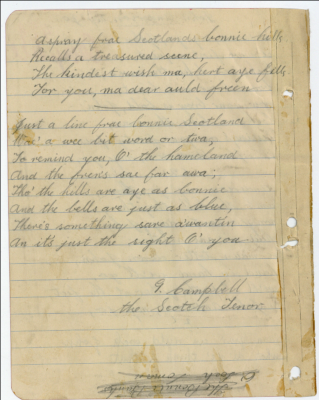 A spray frae Scotlands bonnie hills
Recalls a treasured scene,
The kindest wish ma, hert aye fells
For you, ma dear auld freen
Just a line frae bonnie Scotland
Wi' a wee bit word or twa,
To remind you, O' the hameland
And the friens sae far awa';
Tho' the hills are aye as bonnie
And the bells are just as blue,
There's something sare a'wantin
An it's just the sight O' you
G. Campbell
the Scotch Tenor.